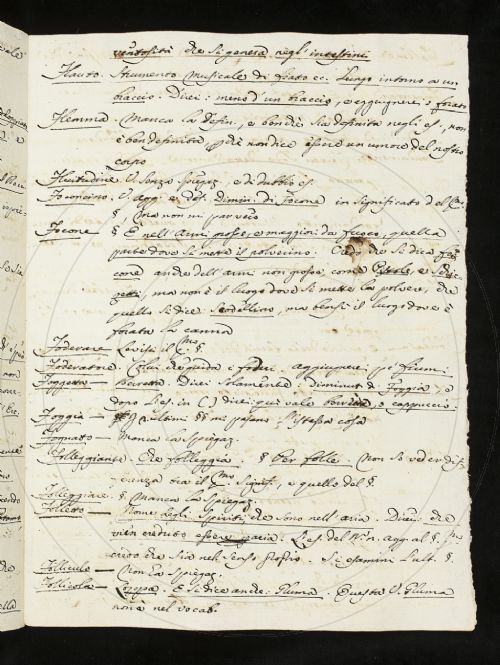 ventosità che si genera negli intestini
Flauto. Strumento musicale di fiato ec. Lungo intorno a un
braccio. Direi: meno d'un braccio, e aggiugnerei: forato
Flemma. Manca la defin., e bench'è sia definita negli es., non
è ben definita, perchè non dice essere un umore del nostro
corpo
V. senza spiegaz., e di dubbio es.
Foconcino. V. agg. e def. Dimin. di Focone in significato del
§. Ma non mi par vero
Focone § E nell'Armi grosse, e maggiori da fuoco, quella
parte dove si mette il polverino. Credo che si dica fo-
cone anche dell'armi non grosse come Pistole, e
ma non è il luogo dove si mette la polvere, che
quello si dice Scodellino, ma bensì il luogo dove è
forata la canna
Foderare Levisi il §.
Foderatore. aggiugnere pe' fiumi
Foggetta — berretta Direi solamente: Diminut. di Foggia, e
dopo l'es. in ( ) direi qui vale berretta, o cappuccio
Foggia ultimi §§ mi pajono l'istessa cosa
Fognato — Manca la spiegaz.
Folleggiante. Che folleggia. § Per folle. Non si vede diffe-
renza tra il signif., e quello del §.
Folleggiare. § Manca la spiegaz.
Folletto — Nome degli Spiriti che sono nell'aria. Direi: che
vien creduto essere in aria. L'es. del agg. al §.
credo che sia nell'istesso. Si esamini l'ult. §.
Follicolo — Non ha spiegaz.
Follicola — Loppa. E si dice anche: Pluma. Questa V. Pluma
non è nel vocab.